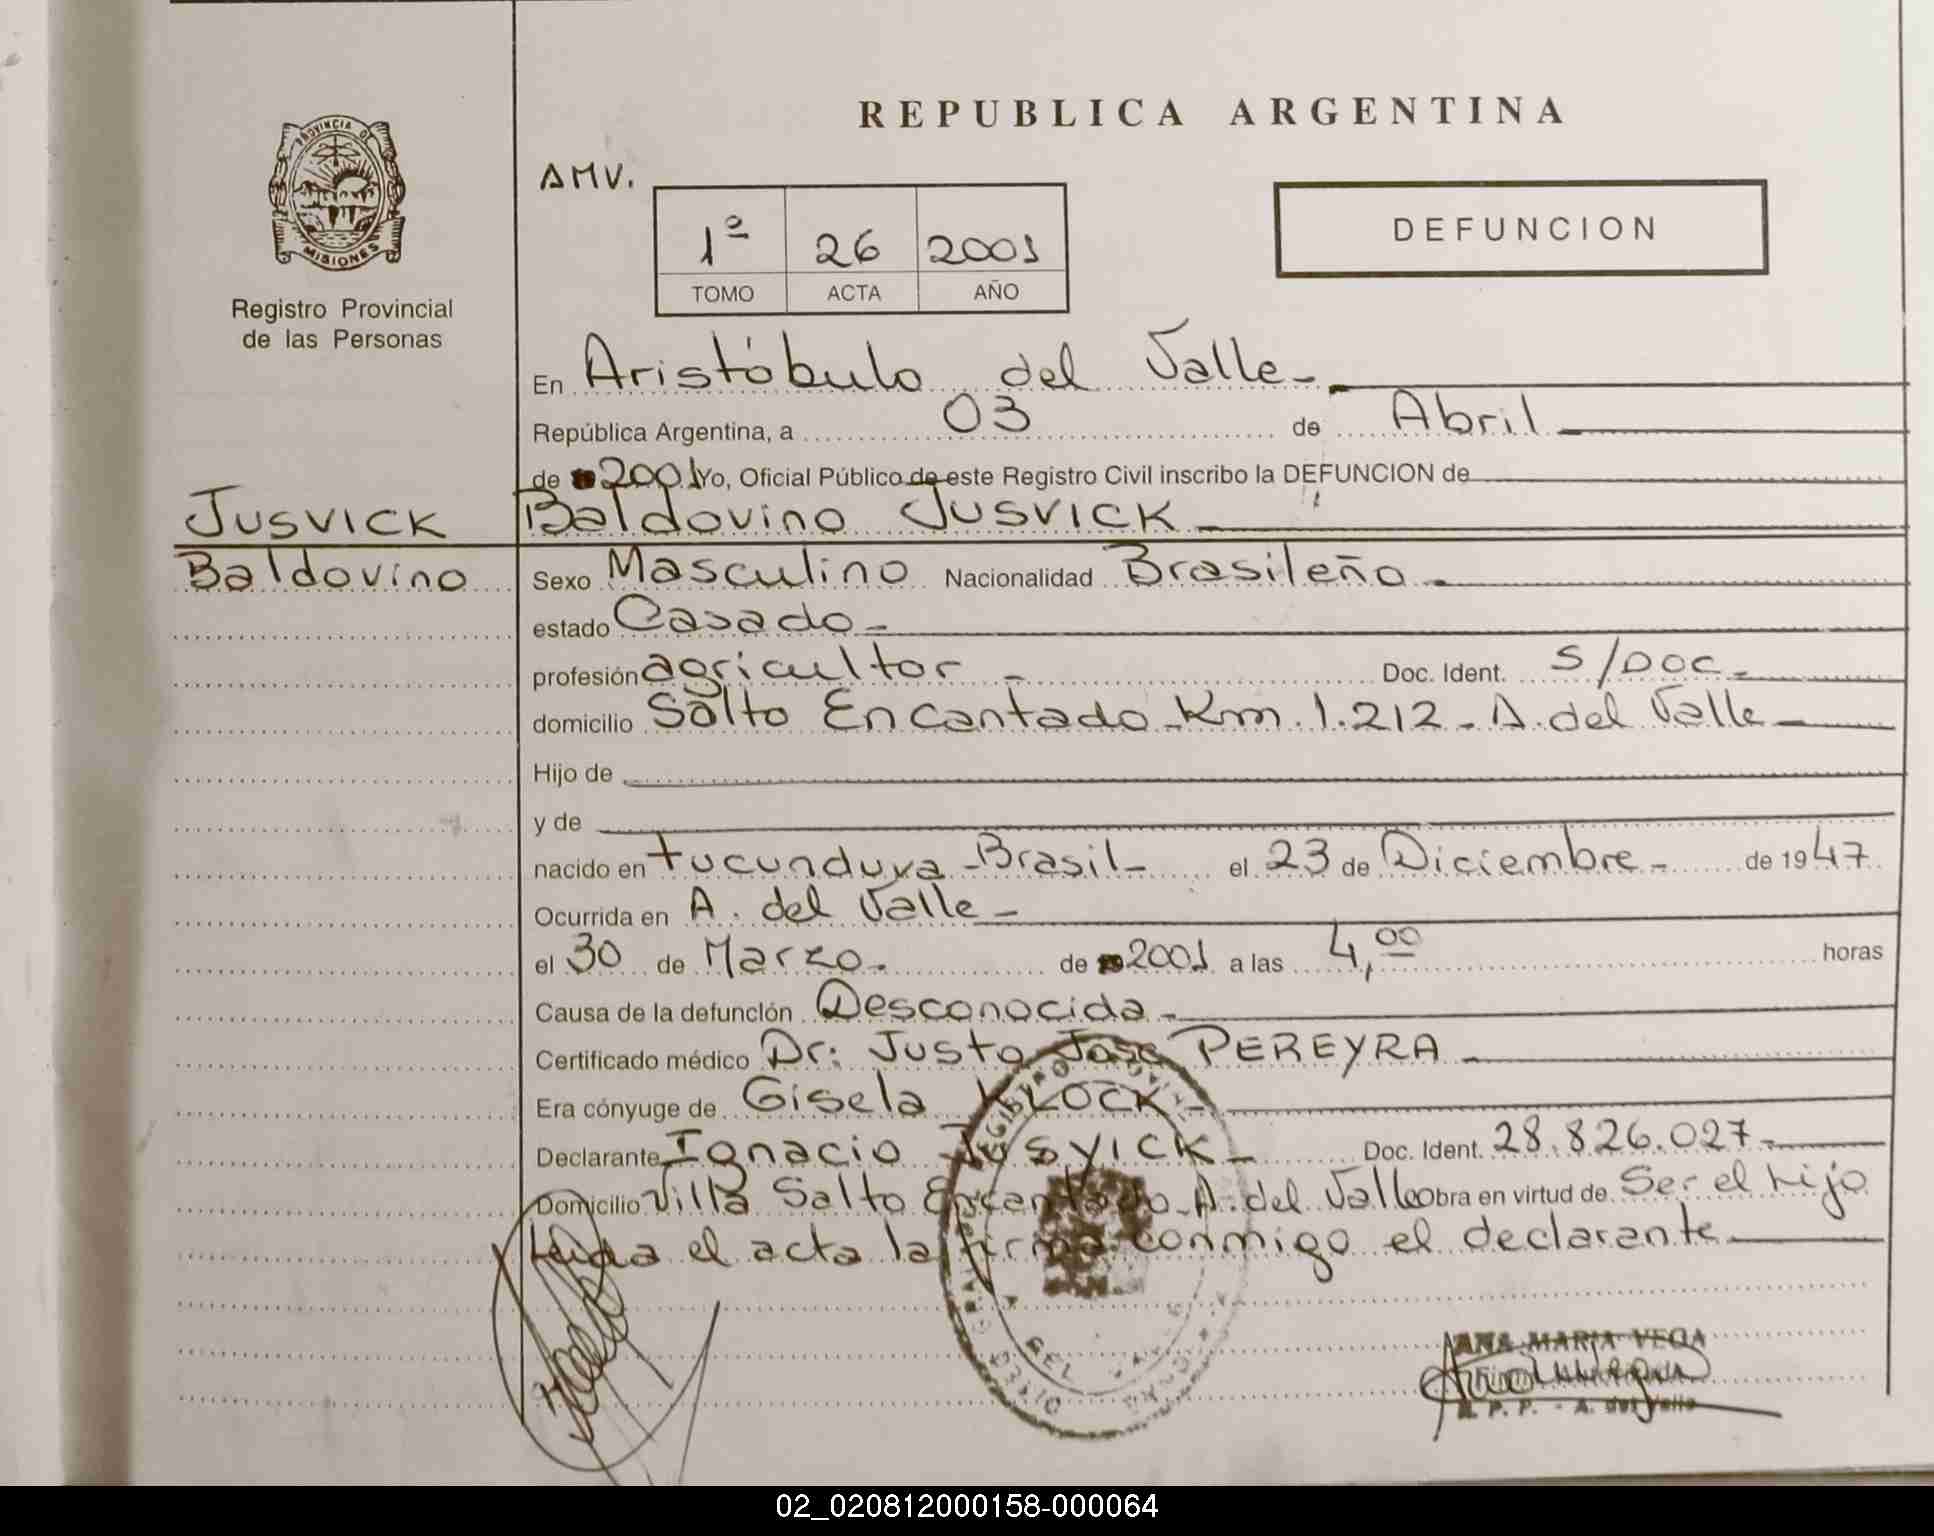 REPUBLICA ARGENTINA
PROVINCIA DE
MISIONES
Registro Provincial
de las Personas
AMV.
1º 26 2001
TOMO ACTA AÑO
DEFUNCION
En Aristóbulo del Valle-
República Argentina, a 03 de Abril
de 2001 Yo, Oficial Público de este Registro Civil inscribo la DEFUNCION de
JUSVICK
Baldovino
Baldovino JUSVICK
Sexo Masculino Nacionalidad Brasileño
estado Casado-
profesión agricultor - Doc. Ident. S/DOC-
domicilio Salto Encantado-Km.1.212-A.del Valle
Hijo de
y de
nacido en Tucunduva-Brasil- el 23 de Diciembre- de 1947
Ocurrida en A. del Valle-
el 30 de Marzo. de 2001 a las 4,00 horas
Causa de la defunción Desconocida-
Certificado médico Dr: Justo Jose PEREYRA
Era cónyuge de Gisela KLOCK-
Declarante Ignacio JUSVICK- Doc. Ident. 28.826.027-
Domicilio Villa Salto Encantado-A.del Valle obra en virtud de Ser el hijo
Leida el acta la firma conmigo el declarante
ANA MARIA VEGA
R. P. P. - A. del Valle
02_020812000158-000064